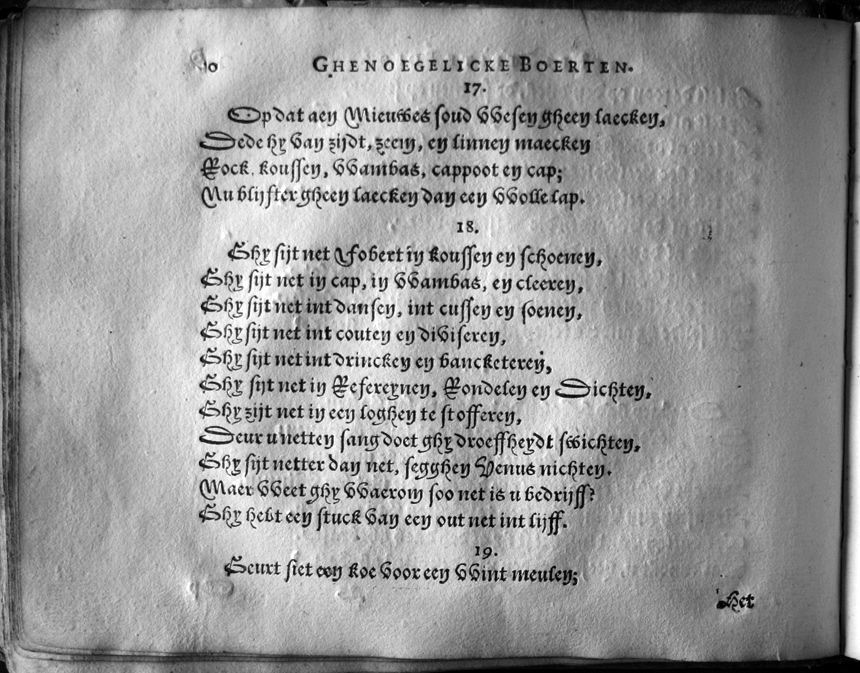 10 GHENOEGELICKE BOERTEN.
17.
Op dat aen Nieuwes soud VVesen gheen laecken,
Dede hy van zijdt, zeem, en linnen maecken
Rock, koussen, VVambas, cappoot en cap;
Nu blijfter gheen laecken dan een VVolle lap.
18.
Ghy sijt net Jobert in koussen en schoenen,
Ghy sijt net in cap, in VVambas, en cleeren,
Ghy sijt net int dansen, int cussen en soenen,
Ghy sijt net int couten en diviseren,
Ghy sijt net int drincken en bancketeren,
Ghy sijt net in Refereynen, Rondelen en Dichten,
Ghy zijt net in een loghen te stofferen,
Deur u netten sang doet ghy droeffheydt swichten,
Ghy sijt netter dan net, segghen Venus nichten.
Maer VVeet ghy VVaerom soo net is u bedrijff?
Ghy hebt een stuck van een out net int lijff.
19.
Geurt siet een koe voor een VVint meulen;
Het